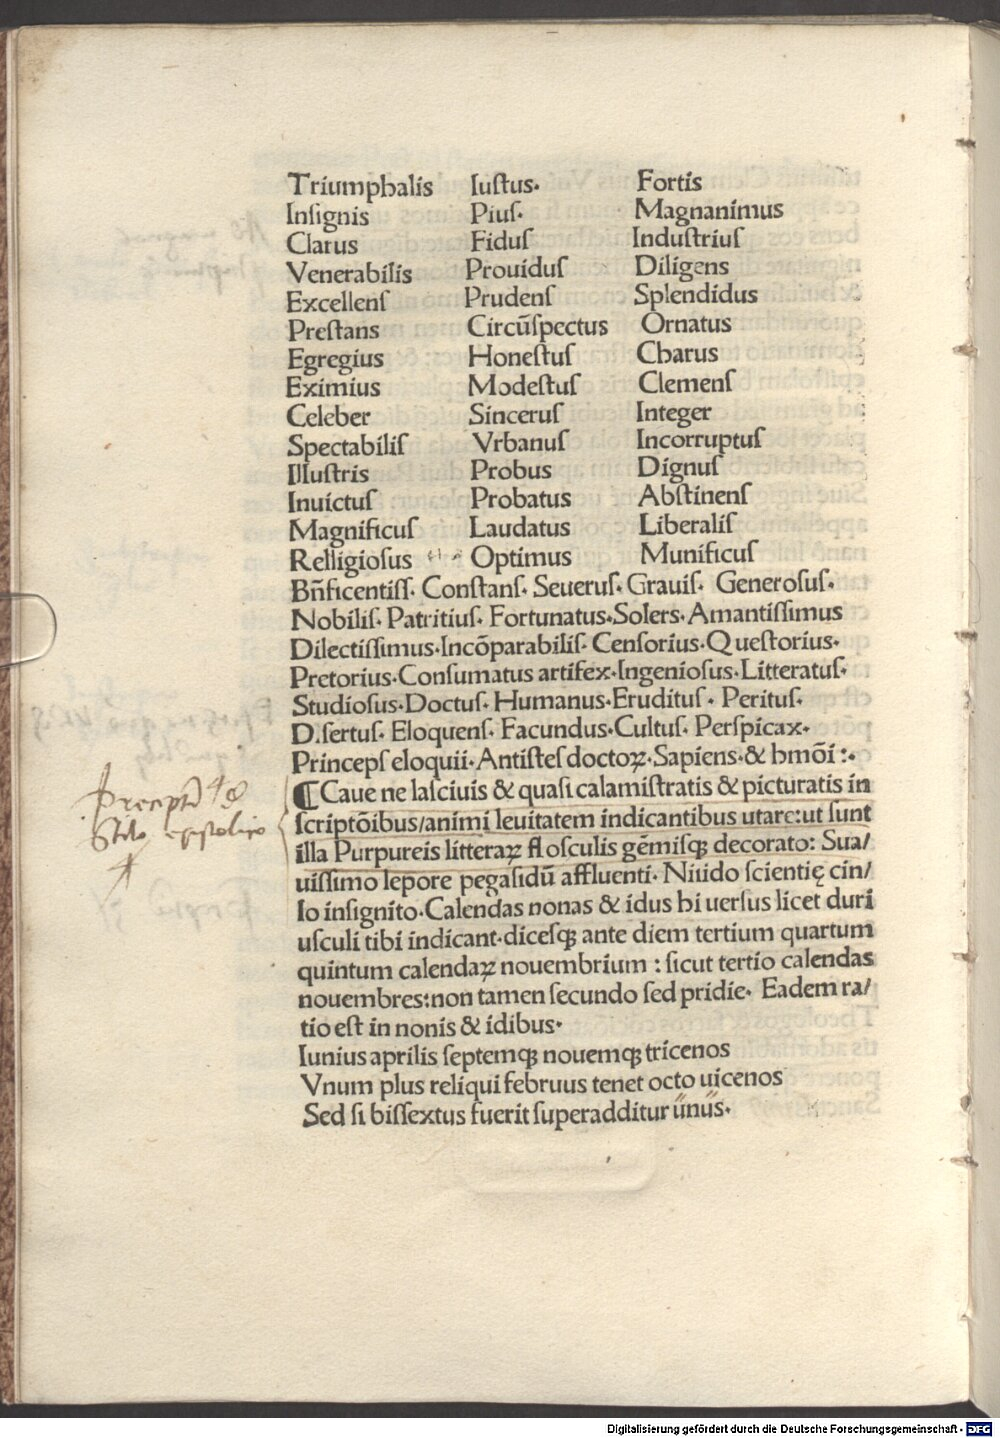 Triumphalis Iustus. Fortis
Insignis Pius. Magnanimus
Clarus Fidus Industrius
Venerabilis Prouidus Diligens
Excellens Prudens Splendidus
Prestans Circũspectus Ornatus
Egregius Honestus Charus
Eximius Modestus Clemens
Celeber Sincerus Integer
Spectabilis Vrbanus Incorruptus
Illustris Probus Dignus
Inuictus Probatus Abstinens
Magnificus Laudatus Liberalis
Relligiosus Optimus Munificus
Bñficentiss. Constans. Seuerus. Grauis. Generosus.
Nobilis. Patritius. Fortunatus. Solers. Amantissimus
Dilectissimus. Incõparabilis. Censorius. Questorius.
Pretorius. Consumatus artifex. Ingeniosus. Litteratus.
Studiosus. Doctus. Humanus. Eruditus. Peritus.
D.sertus. Eloquens. Facundus. Cultus. Perspicax.
Princeps eloquii. Antistes doctoꝝ. Sapiens. & hmõi :.
¶ Caue ne lasciuis & quasi calamistratis & picturatis in
scriptõibus/animi leuitatem indicantibus utare: ut sunt
illa Purpureis litteraꝝ flosculis gẽmisqꝫ decorato: Sua/
uissimo lepore pegasidũ affluenti. Nitido scientię cin/
lo insignito. Calendas nonas & idus hi uersus licet duri
usculi tibi indicant. dicesqꝫ ante diem tertium quartum
quintum calendaꝝ nouembrium : sicut tertio calendas
nouembres: non tamen secundo sed pridie. Eadem ra/
tio est in nonis & idibus.
Iunius aprilis septemqꝫ nouemqꝫ tricenos
Vnum plus reliqui februus tenet octo uicenos
Sed si bissextus fuerit superadditur unus.
Stilo epistolico
Digitalisierung gefördert durch die Deutsche Forschungsgemeinschaft - DFG